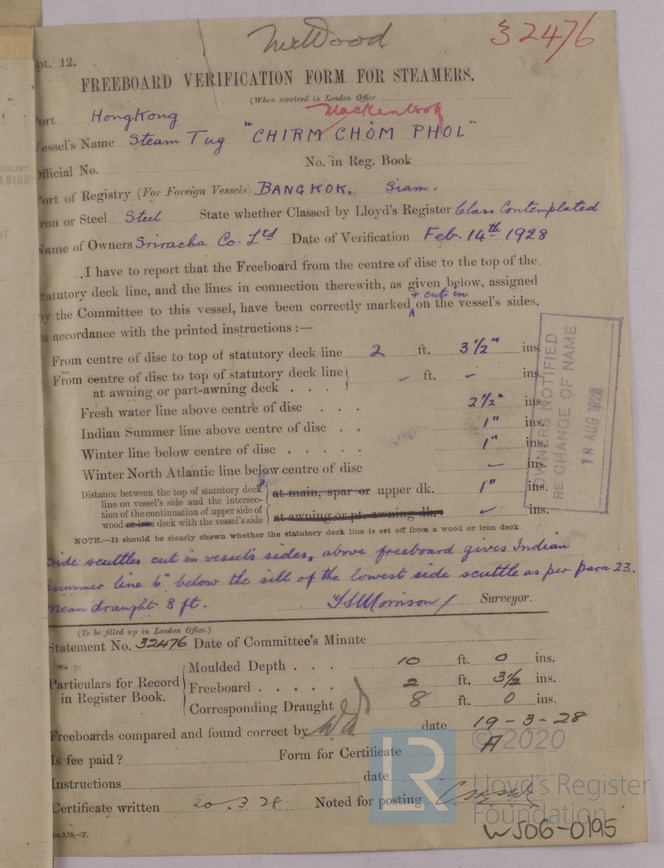 Mr Wood
32476
pt. 12.
FREEBOARD VERIFICATION FORM FOR STEAMERS.
(When received in London Office
ort Hongkong
Mackintosh
essel's Name Steam Tug "CHIRM CHOM PHOL"
fficial No. No. in Reg. Book
ort of Registry (For Foreign Vessels) BANGKOK. Siam.
ron or Steel Steel State whether Classed by Lloyd's Register Class Contemplated
ame of Owners Sriracha Co. Ltd Date of Verification Feb. 14th 1928
I have to report that the Freeboard from the centre of disc to the top of the
tatutory deck line, and the lines in connection therewith, as given below, assigned
+ cut in
y the Committee to this vessel, have been correctly marked on the vessel's sides,
n accordance with the printed instructions :—
From centre of disc to top of statutory deck line 2 ft. 3½" ins.
From centre of disc to top of statutory deck line
at awning or part-awning deck . . . - ft. - ins.
Fresh water line above centre of disc . . . 2½" ins.
Indian Summer line above centre of disc . . 1" ins.
Winter line below centre of disc . . . . . 1" ins.
Winter North Atlantic line below centre of disc - ins.
Distance between the top of statutory deck
line on vessel's side and the intersec-
tion of the continuation of upper side of
wood or iron deck with the vessel's side
at main, spar or upper dk. 1" ins.
at awning or pt. awning dk. - ins.
NOTE.—It should be clearly shown whether the statutory deck line is set off from a wood or iron deck
OWNERS NOTIFIED
RE CHANGE OF NAME
18 AUG 1928
Side scuttles cut in vessel's sides, above freeboard gives Indian
summer line 6" below the sill of the lowest side scuttle as per para 23.
mean draught 8 ft. Morrison Surveyor.
(To be filled up in London Office.)
Statement No. 32476 Date of Committee's Minute
Particulars for Record
in Register Book.
Moulded Depth . . . 10 ft. 0 ins.
Freeboard . . . . . 2 ft. 3½ ins.
Corresponding Draught 8 ft. 0 ins.
Freeboards compared and found correct by date 19-3-28
Is fee paid? Form for Certificate A
Instructions date
Certificate written 20.3.28 Noted for posting
LR
© 2020
Lloyd's Register
Foundation
WS06-0195